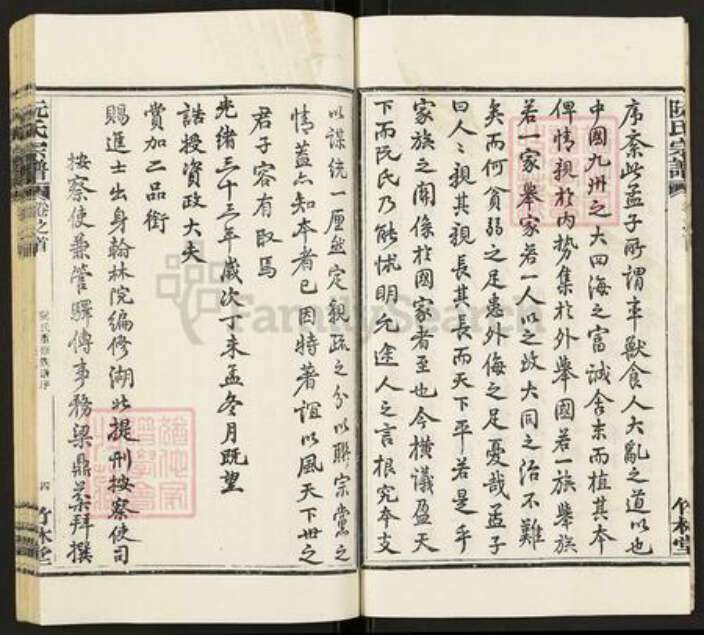 阮氏宗譜
竹林堂
序紊此孟子所謂率獸食人大亂之道以也
中國九州之大四海之富誠舍末而植其本
俾情親於內勢集於外舉國若一族舉族
若一家舉家若一人以之攷大同之治不難
矣而何貧弱之足患外侮之足憂哉孟子
曰人〻親其親長其長而天下平若是乎
家族之關係於國家者至也今橫議盈天
下而阮氏乃能怵明允途人之言根究本支
以謀統一厘然定親疏之分以聯宗黨之
情蓋亦知本者已因特著誼以風天下世之
君子容有取焉
光緒三十三年歲次丁未孟冬月既望
誥授資政大夫
賞加二品銜
賜進士出身翰林院編修湖北提刑按察使司
按察使兼管驛傳事務梁鼎棻拜撰
阮氏宗譜
卷之首
阮氏重修族譜序
四
竹林堂
FamilySearch